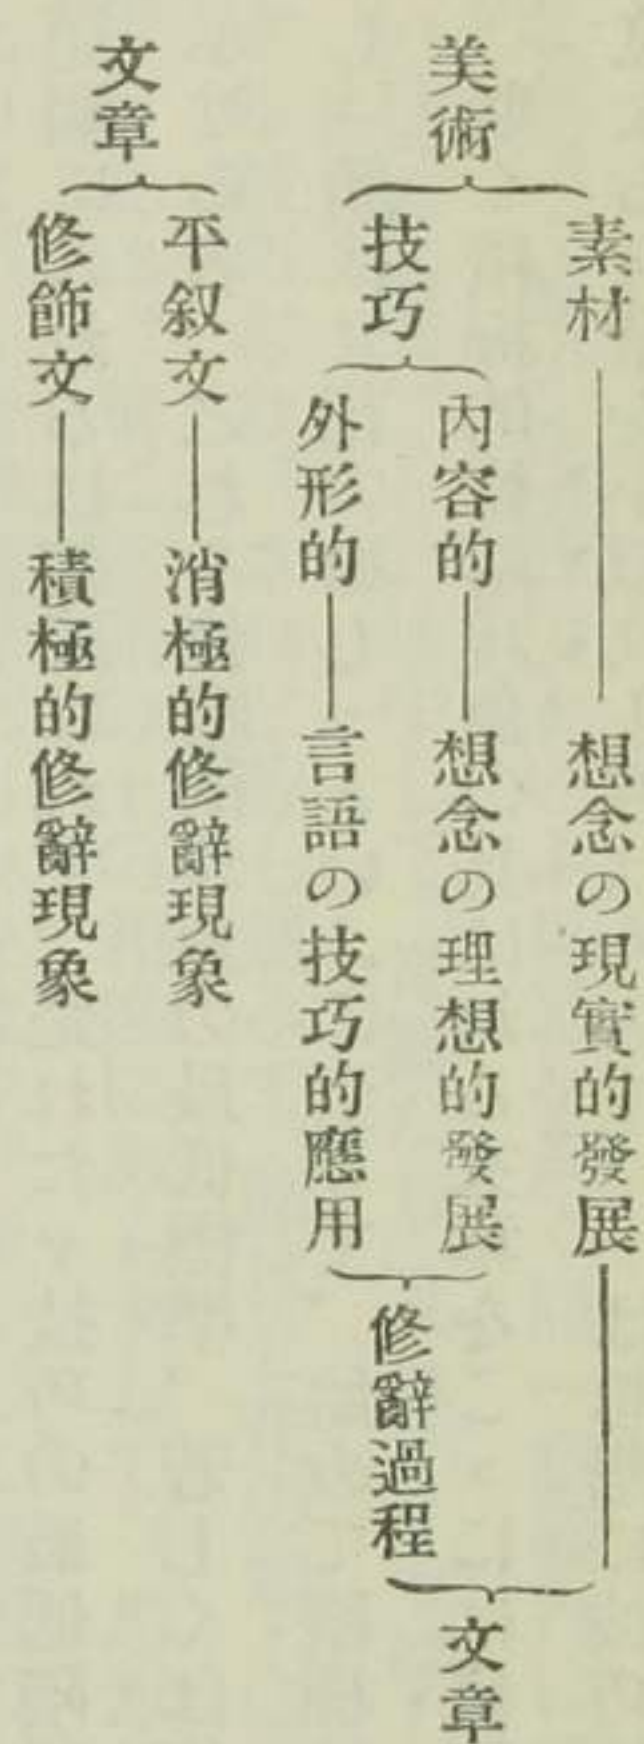 美術
素材――想念の現實的發展
技巧
內容的――想念の理想的發展
外形的――言語の技巧的應用
修辭過程
文章
文章
平叙文――消極的修辭現象
修飾文――積極的修辭現象